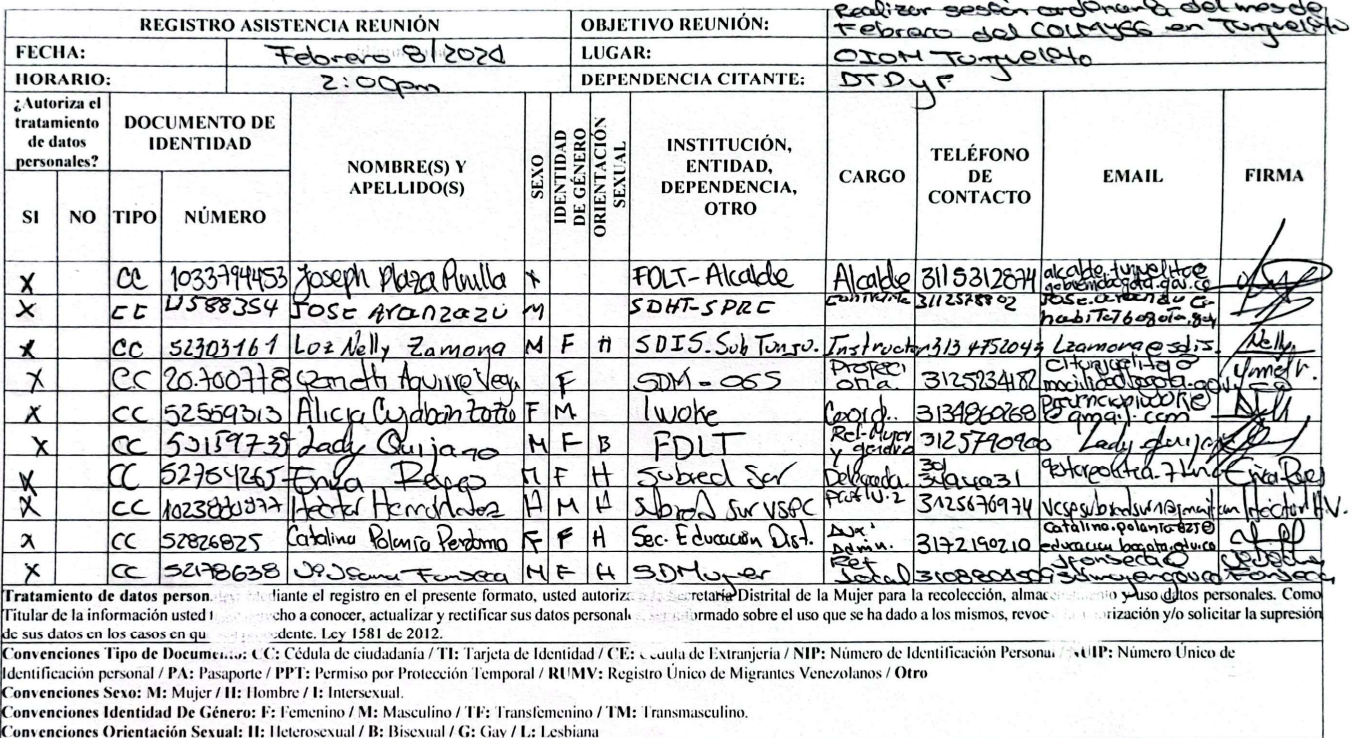 REGISTRO ASISTENCIA REUNIÓN
OBJETIVO REUNIÓN: Realizar sesión ordinaria del mes de
Febrero del COLMYEG en Tunjuelito
FECHA: Febrero 8/2024 LUGAR: CIOM Tunjuelito
HORARIO: 2:00pm DEPENDENCIA CITANTE: DTDyP
¿Autoriza el tratamiento de datos personales? DOCUMENTO DE IDENTIDAD NOMBRE(S) Y APELLIDO(S) SEXO IDENTIDAD DE GÉNERO ORIENTACIÓN SEXUAL INSTITUCIÓN, ENTIDAD, DEPENDENCIA, OTRO CARGO TELÉFONO DE CONTACTO EMAIL FIRMA
SI NO TIPO NÚMERO
X CC 1033794453 Joseph Plaza Pinilla X FDLT-Alcalde Alcalde 3115312874
X CC JOSE Aranzazu M SDHT-SPRC 3112578802
X CC 52303161 Luz Nelly Zamona M F H SDIS. Sub Tunju. Instructor 313 4752043 Lzamora@sdis. Nelly
X CC 20.700778 Aguirre Vega F SDM - OGS 3125234182
X CC 52559313 Alicia F M Iwoke Coord. 3134860268
X CC 53159735 Lady Quijano M F B FDLT Ref-Mujer y genero 3125790900 Lady Quijano
X CC 52754265 M F H Subred Sur Delegada
X CC Hector Hernandez H M H Subred Sur VSPC 3125676974 Hector H.V.
X CC 52826825 Catalina Polanía Perdomo F F H Sec. Educación Dist. Aux. Admin. 3172190210
X CC 52178638 Fonseca M F H SDMujer Ref Local 3108804509 Fonseca
Tratamiento de datos person diante el registro en el presente formato, usted autoriza Secretaría Distrital de la Mujer para la recolección, y uso datos personales. Como
Titular de la información usted cho a conocer, actualizar y rectificar sus datos personal formado sobre el uso que se ha dado a los mismos, revoc orización y/o solicitar la supresión
de sus datos en los casos en qu dente. Ley 1581 de 2012.
Convenciones Tipo de Documento: CC: Cédula de ciudadanía / TI: Tarjeta de Identidad / CE: Cédula de Extranjería / NIP: Número de Identificación Personal / NUIP: Número Único de
Identificación personal / PA: Pasaporte / PPT: Permiso por Protección Temporal / RUMV: Registro Único de Migrantes Venezolanos / Otro
Convenciones Sexo: M: Mujer / H: Hombre / I: Intersexual.
Convenciones Identidad De Género: F: Femenino / M: Masculino / TF: Transfemenino / TM: Transmasculino.
Convenciones Orientación Sexual: H: Heterosexual / B: Bisexual / G: Gay / L: Lesbiana